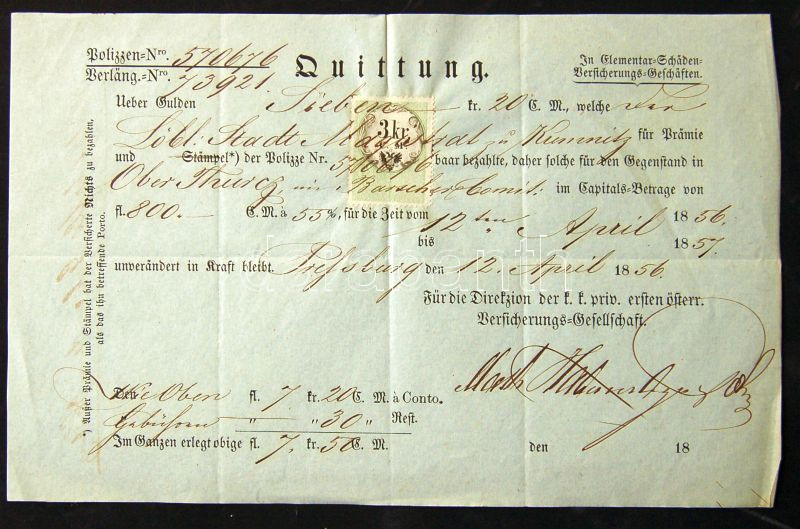 Polizzen=Nro. 570676
Verläng.=Nro. 73921.
Quittung.
In Elementar=Schäden=
Versicherungs=Geschäften.
Ueber Gulden Sieben kr. 20 C. M., welche Der
Löbl: Stadt Magistrat zu Kremnitz für Prämie
und Stämpel*) der Polizze Nr. 570676 baar bezahlte, daher solche für den Gegenstand in
Ober Thurcz im Barscher Comit: im Capitals=Betrage von
fl. 800.– C. M. à 55 %, für die Zeit vom 12ten April 1856.
bis 1857.
unverändert in Kraft bleibt. Preßburg den 12. April 1856.
Für die Direkzion der k. k. priv. ersten österr.
Versicherungs=Gesellschaft.
3 kr.
Wie Oben fl. 7 kr. 20 C. M. à Conto.
Gebühren " " 30 " Rest.
Im Ganzen erlegt obige fl. 7. kr. 50 C. M.
den 18
*) Außer Prämie und Stämpel hat der Versicherte Nichts zu bezahlen,
als das ihn betreffende Porto.
darabanth